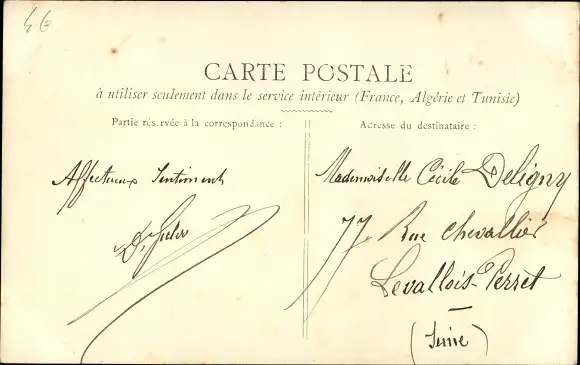 CARTE POSTALE
à utiliser seulement dans le service intérieur (France, Algérie et Tunisie)
Partie réservée à la correspondance :
Adresse du destinataire :
Affectueux Sentiments
Mademoiselle Cécile Deligny
77 Rue Chevallier
Levallois-Perret
(Seine)